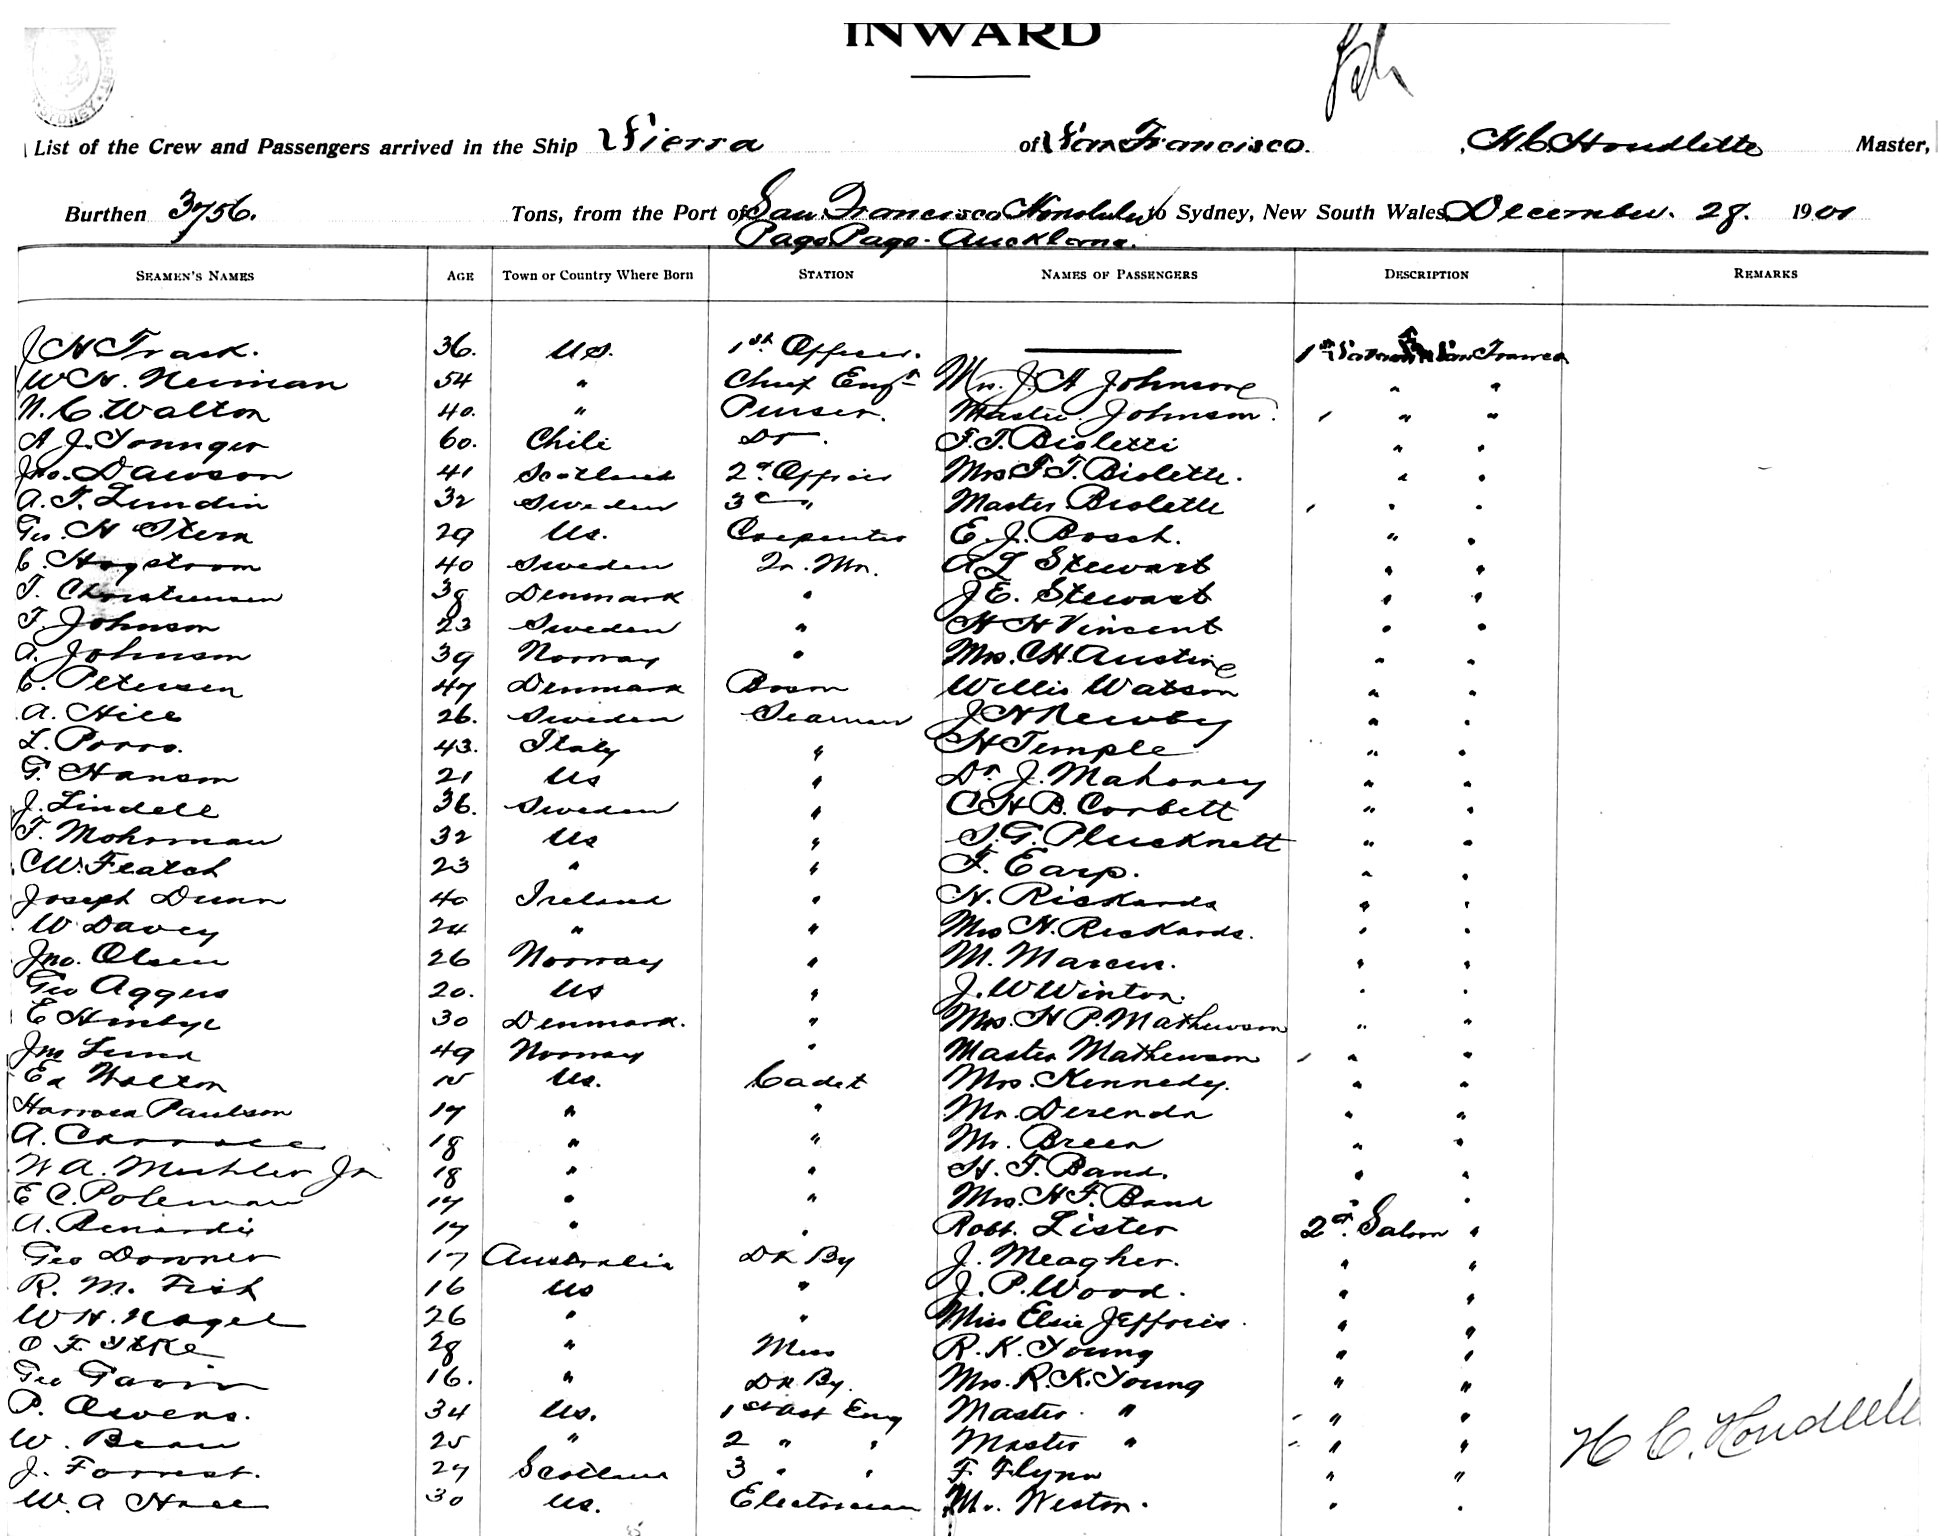 INWARD
List of the Crew and Passengers arrived in the Ship Sierra of San Francisco. H.C. Houdlette Master,
Burthen 3756. Tons, from the Port of San Francisco Honolulu to Sydney, New South Wales December. 28. 1901
Pago Pago - Auckland.
SEAMEN'S NAMES AGE Town or Country Where Born STATION NAMES OF PASSENGERS DESCRIPTION REMARKS
J H Trask. 36. US. 1st. Officer. 1st Saloon San Francco
W H. Neuman 54 " Chief Engr Mrs. J. A Johnson " "
N. C. Walton 40. " Purser. Master Johnson. " "
A J. Younger 60. Chili Dr. F. T. Bioletti " "
Jno. Dawson 41 Scotland 2d Officer Mrs F. T. Bioletti. " "
A. F. Lundin 32 Sweden 3 " Master Bioletti " "
Geo. H Stern 29 US. Carpenter E. J. Bosch. " "
C. Hagstrom 40 Sweden Qr. Mr. A L Stewart " "
T. Christensen 38 Denmark " J E. Stewart " "
T. Johnson 23 Sweden " H H Vincent " "
A. Johnson 39 Norway " Mrs. C H. Austin " "
C. Petersen 47 Denmark Bosn Willis Watson " "
A. Hill 26. Sweden Seaman J H Newby " "
L. Porro. 43. Italy " H Temple " "
G. Hanson 21 US " Dr. J. Mahoney " "
J. Lindell 36. Sweden " C H B. Corbett " "
F. Mohrman 32 US " S. G. Plucknett " "
C W. Flatch 23 " " F. Earp. " "
Joseph Dunn 40 Ireland " H. Rickards " "
W Davey 24 " " Mrs H. Rickards. " "
Jno. Olsen 26 Norway " M. Marcus. " "
Geo Aggus 20. US " J. W Winton. " "
E 30 Denmark. " Mrs. H P. Mathewson " "
Jno Lund 49 Norway " Master Mathewson " "
Ed Walton 15 US. Cadet Mrs. Kennedy. " "
Harrold Paulson 17 " " Mr. Derenda " "
A. 18 " " Mr. Breen " "
W A. Mushler Jr 18 " " H. F. Band. " "
E C. Poleman 17 " " Mrs. H F. Band " "
A. Renardi 17 " " Robt. Lister 2d. Saloon "
Geo Downer 17 Australia Dk By J. Meagher. " "
R. M. Fish 16 US " J. P. Wood. " "
W H. Nagel 26 " " Miss Elsie Jefferis. " "
O F. 28 " Mess R. K. Young " "
Geo Gavin 16. " Dk By. Mrs. R. K. Young " "
P. Owens. 34 US. 1st Ast Eng Master " " "
W. Bean 25 " 2 " " Master " " "
J. Forrest. 27 Scotland 3 " " F Flynn " "
W. A Hall 30 US. Electrician Mr. Weston. " "
H C. Houdlette